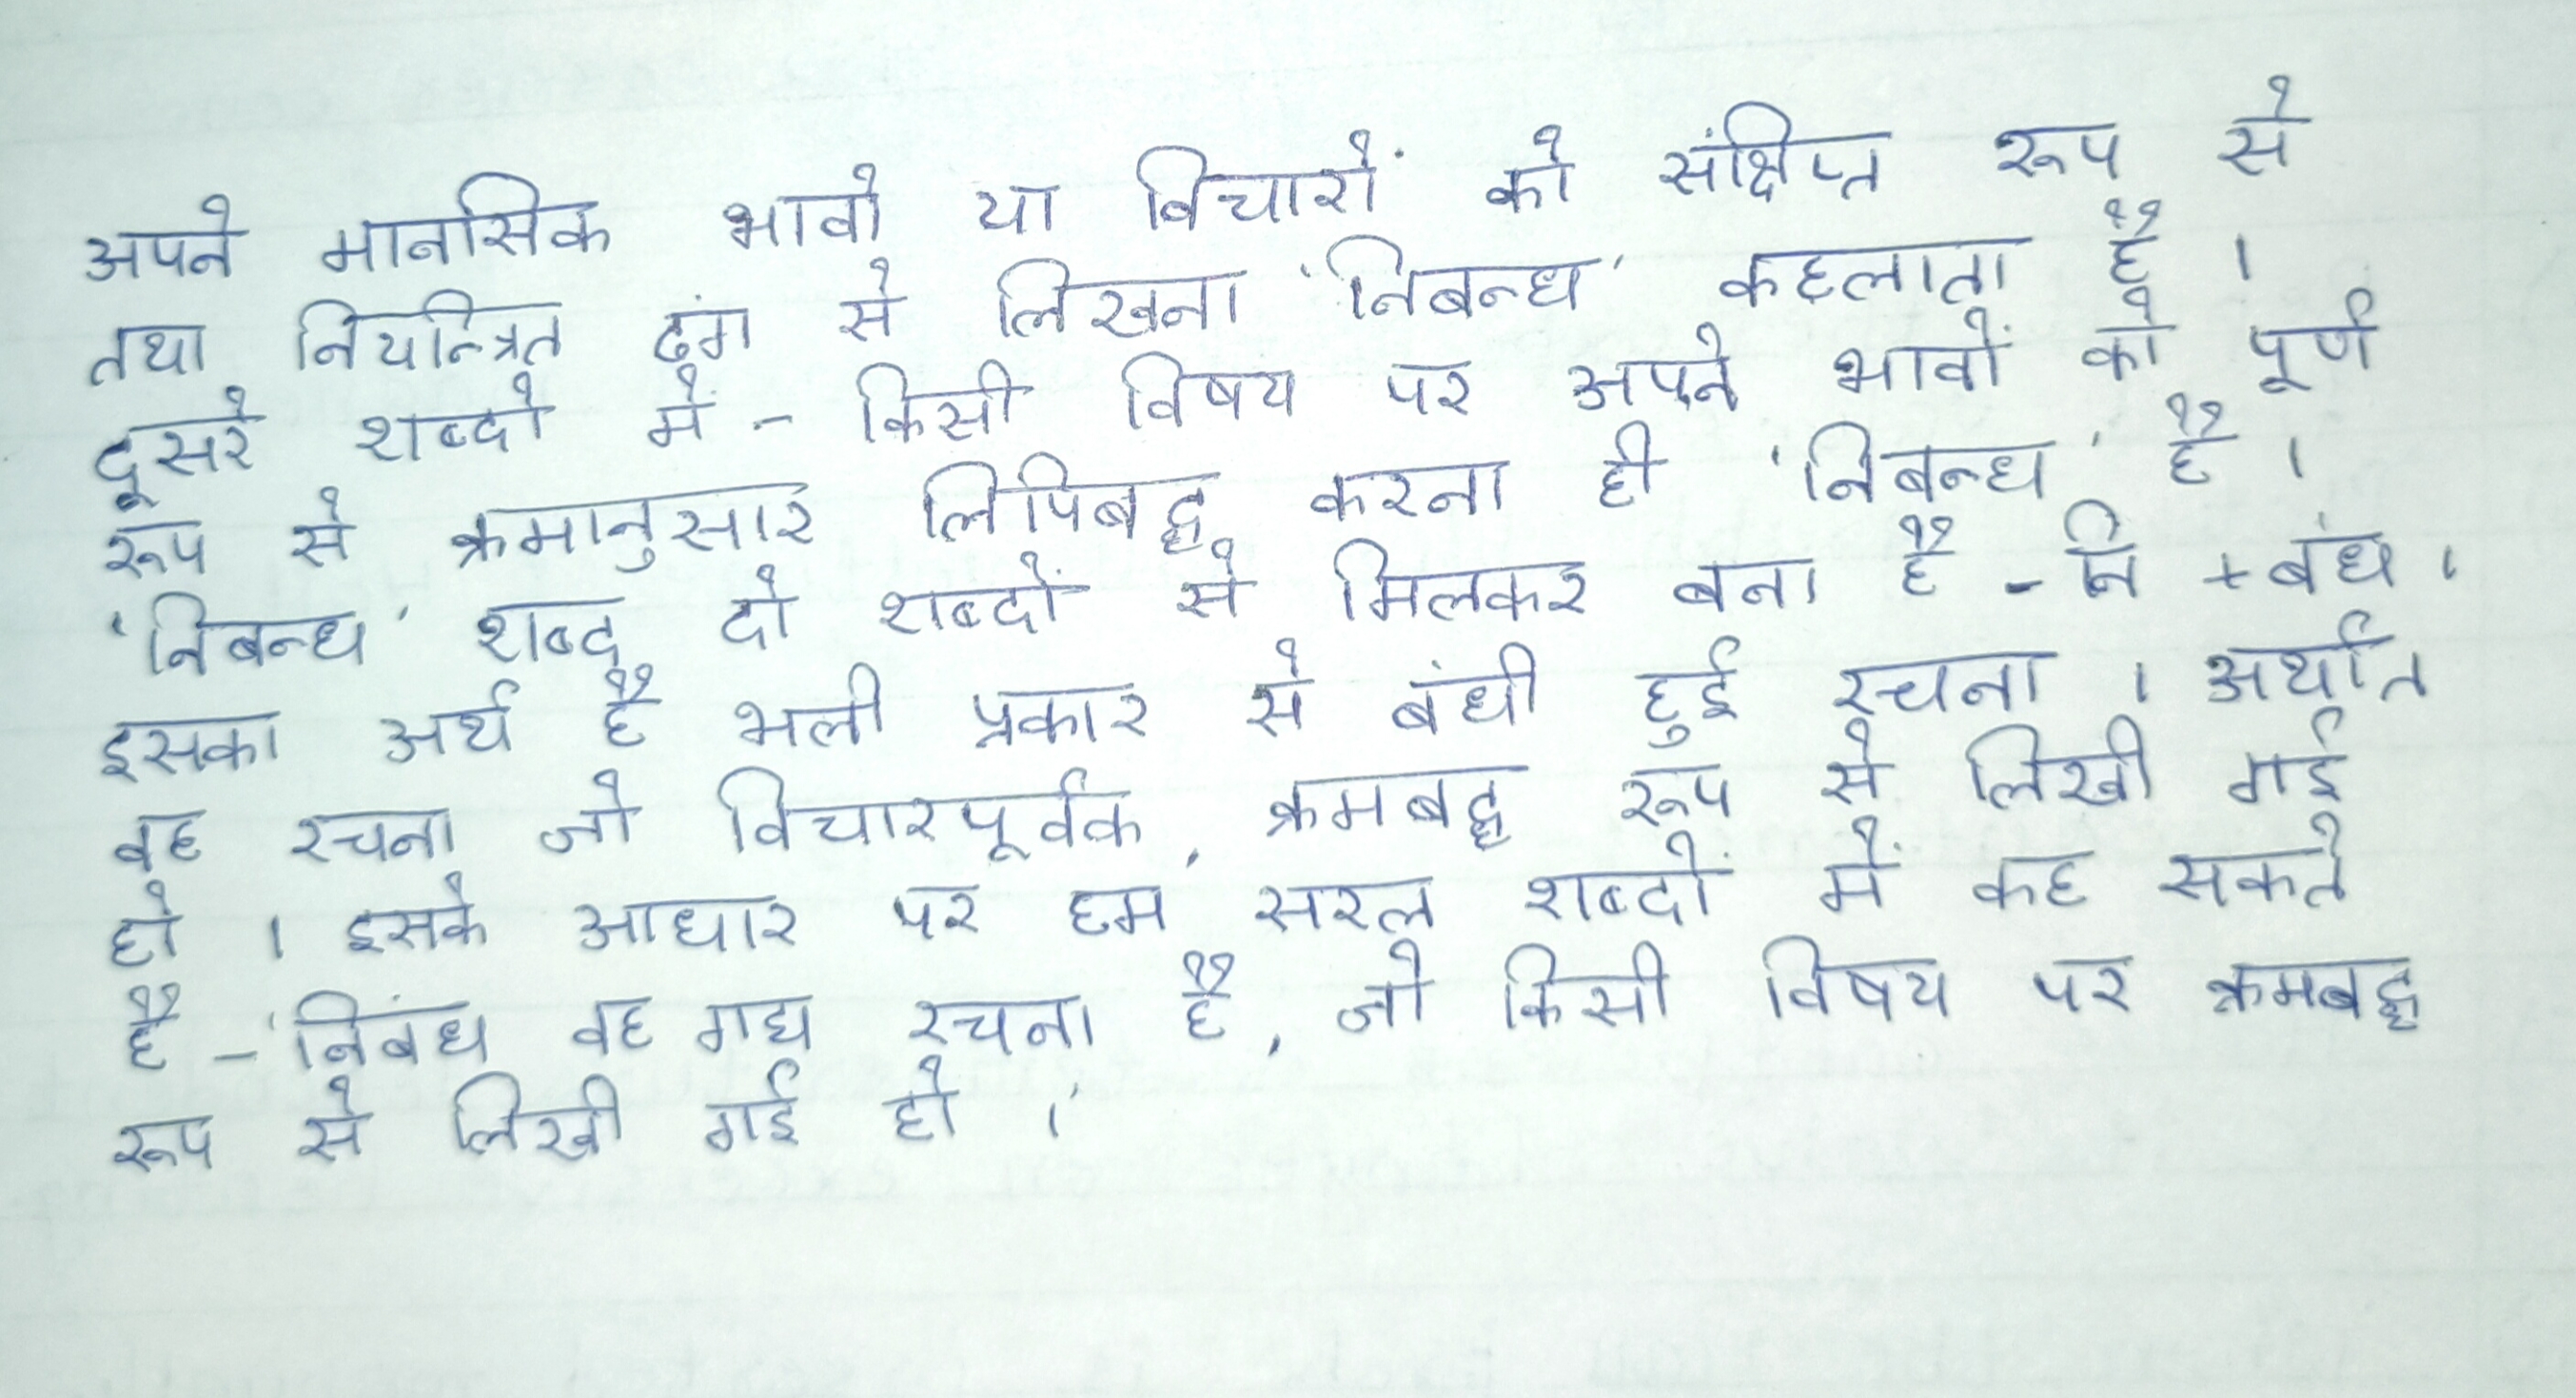 अपने मानसिक भावो या विचारों को संक्षिप्त रूप से
तथा नियन्त्रित ढंग से लिखना 'निबन्ध' कहलाता है ।
दूसरे शब्दो में - किसी विषय पर अपने भावों को पूर्ण
रूप से क्रमानुसार लिपिबद्ध करना ही 'निबन्ध' है ।
'निबन्ध' शब्द दो शब्दों से मिलकर बना है - नि + बंध ।
इसका अर्थ है भली प्रकार से बंधी हुई रचना । अर्थात
वह रचना जो विचारपूर्वक, क्रमबद्ध रूप से लिखी गई
हो । इसके आधार पर हम सरल शब्दों में कह सकते
है - 'निबंध वह गद्य रचना है, जो किसी विषय पर क्रमबद्ध
रूप से लिखी गई हो ।'